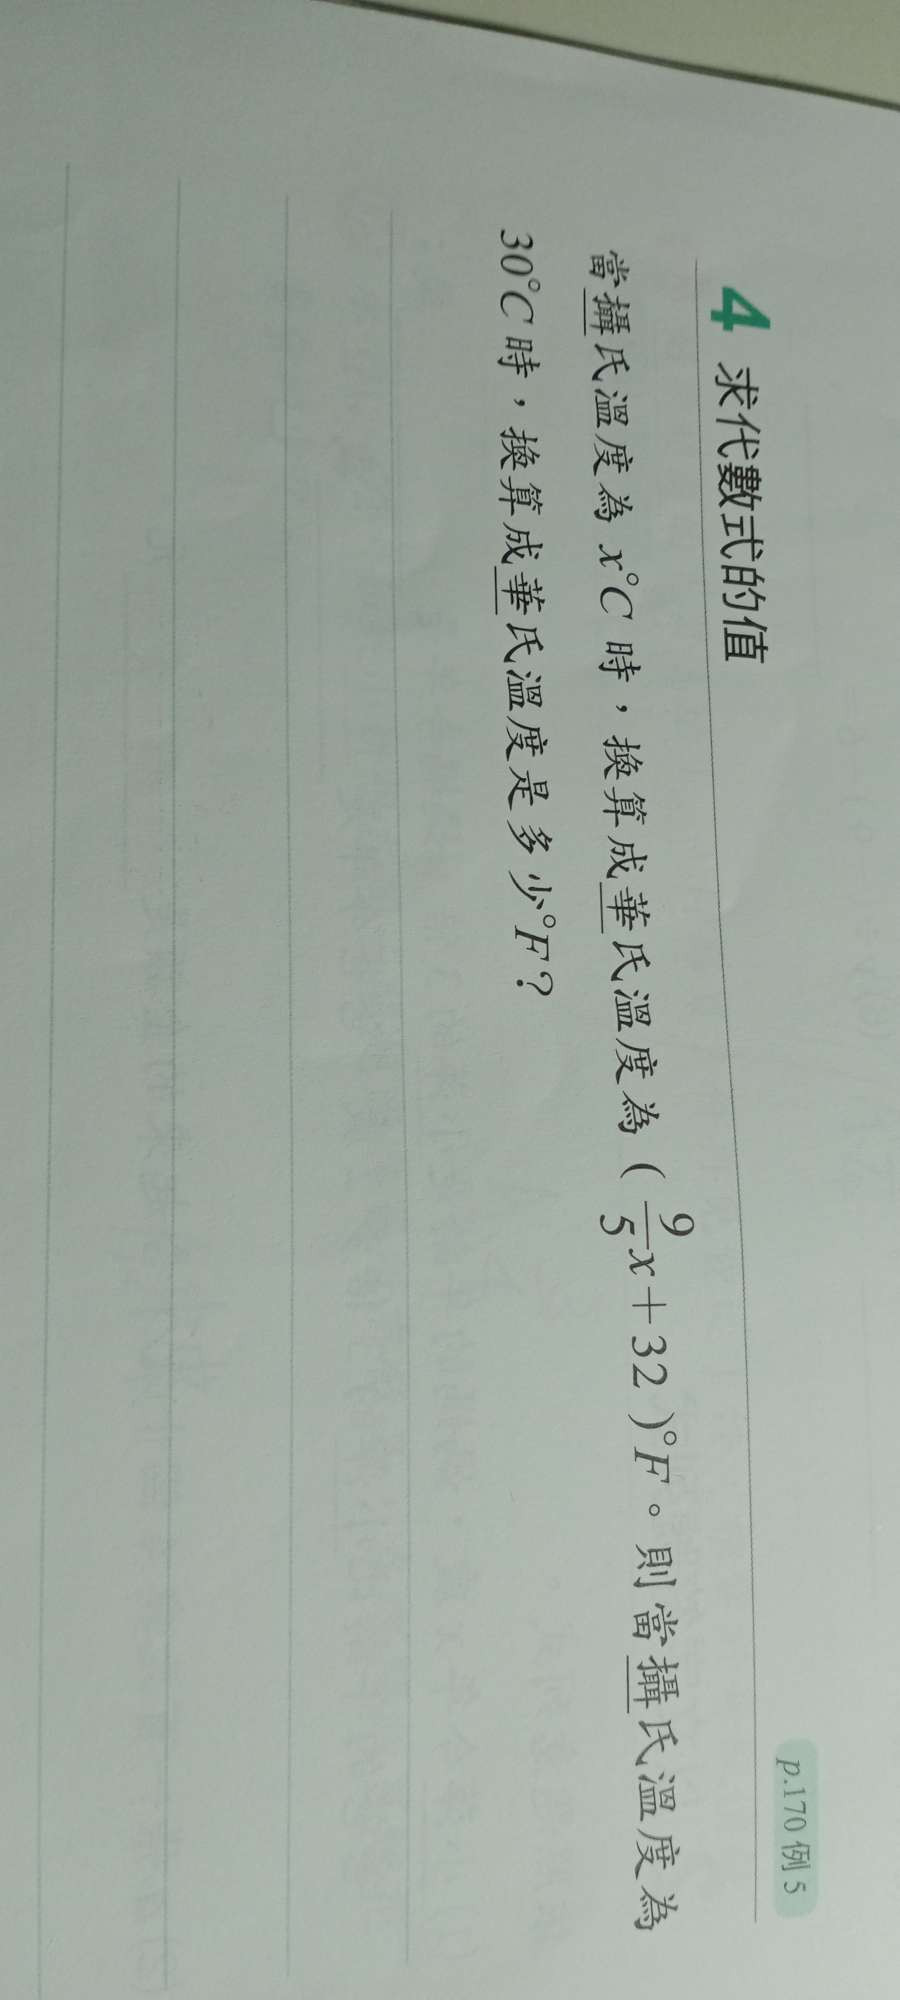 p.170 例 5
4 求代數式的值
當攝氏溫度為 x°C 時，換算成華氏溫度為 ( 9/5 x＋32 )°F。則當攝氏溫度為
30°C 時，換算成華氏溫度是多少°F？